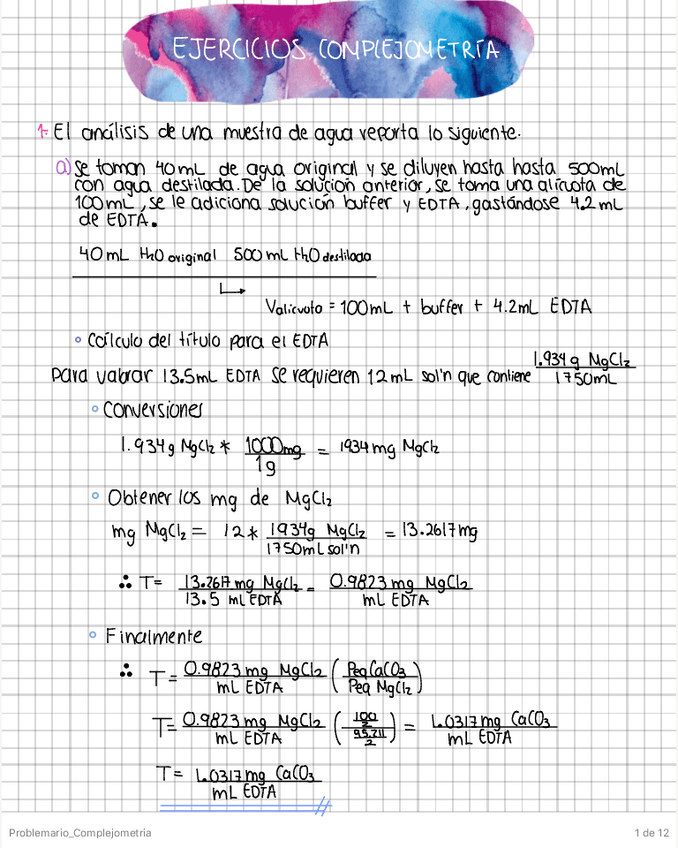 EJERCICIOS COMPLEJOMETRÍA
1. El análisis de una muestra de agua reporta lo siguiente.
a) Se toman 40mL de agua original y se diluyen hasta hasta 500mL
con agua destilada. De la solución anterior, se toma una alícuota de
100mL, se le adiciona solución buffer y EDTA, gastándose 4.2 mL
de EDTA.
40mL H2O original 500mL H2O destilada
Valícuota = 100mL + buffer + 4.2mL EDTA
Cálculo del título para el EDTA
Para valorar 13.5mL EDTA se requieren 12mL sol'n que contiene 1.934g MgCl2 / 1750mL
Conversiones
1.934g MgCl2 * 1000mg / 1g = 1934mg MgCl2
Obtener los mg de MgCl2
mg MgCl2 = 12 * 1934g MgCl2 / 1750mL sol'n = 13.2617mg
∴ T= 13.2617mg MgCl2 / 13.5 mL EDTA = 0.9823mg MgCl2 / mL EDTA
Finalmente
∴ T= 0.9823mg MgCl2 / mL EDTA (Peq CaCO3 / Peq MgCl2)
T= 0.9823mg MgCl2 / mL EDTA (100/2 / 95.211/2) = 1.0317mg CaCO3 / mL EDTA
T= 1.0317mg CaCO3 / mL EDTA
Problemario_Complejometria
1 de 12